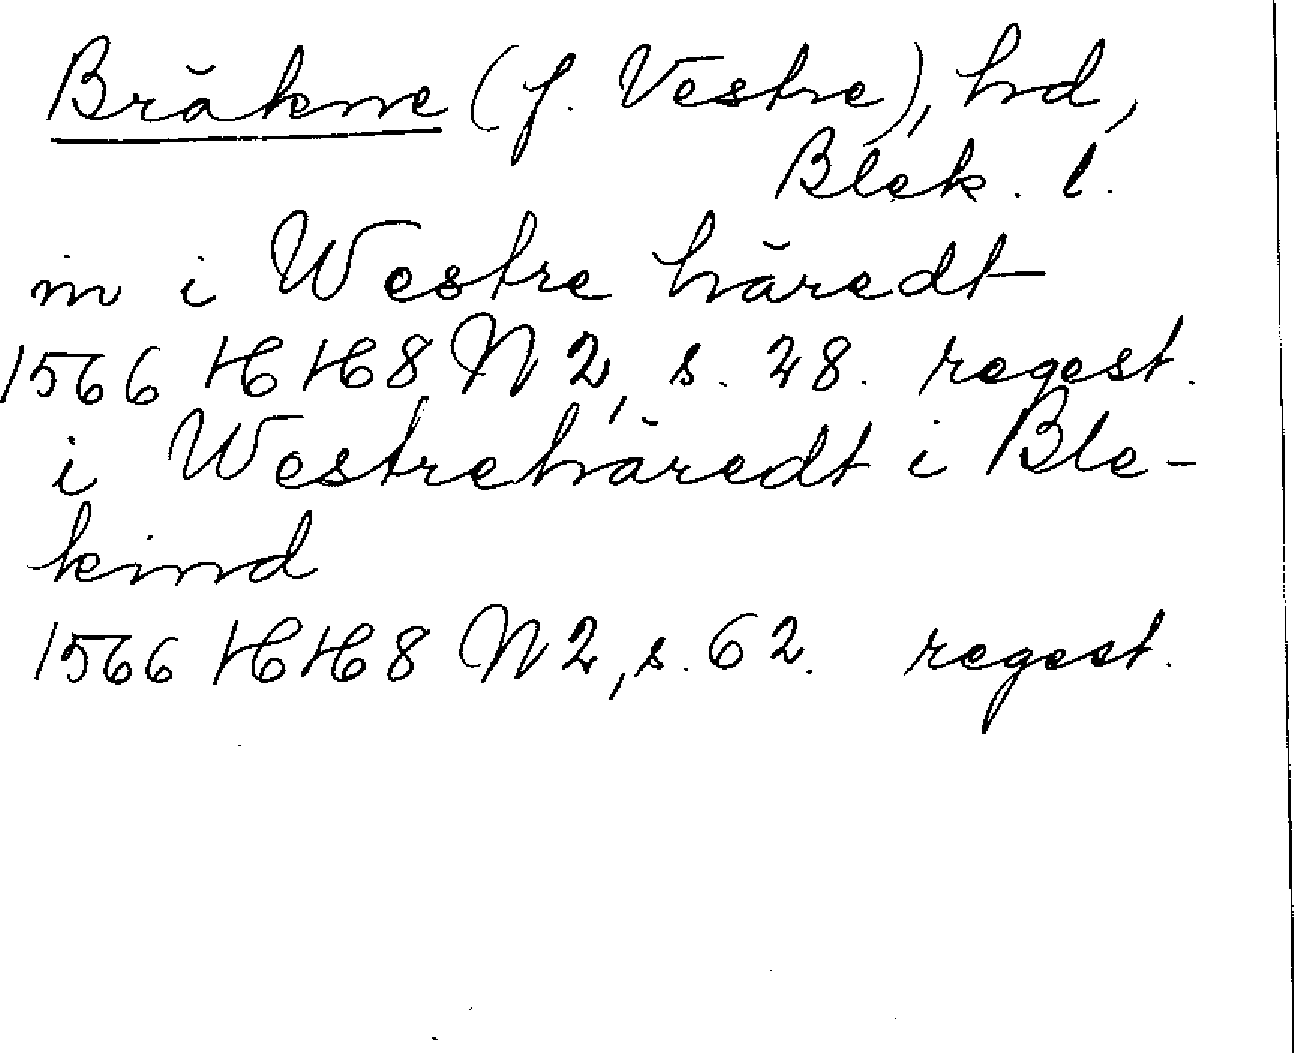 Bräkne (f. Vestre), hd,
Blek. l.
in i Westre häredt
1566 HH8 N 2, s. 28. regest.
i Westrehäredt i Ble-
kind
1566 HH8 N 2, s. 62. regest.